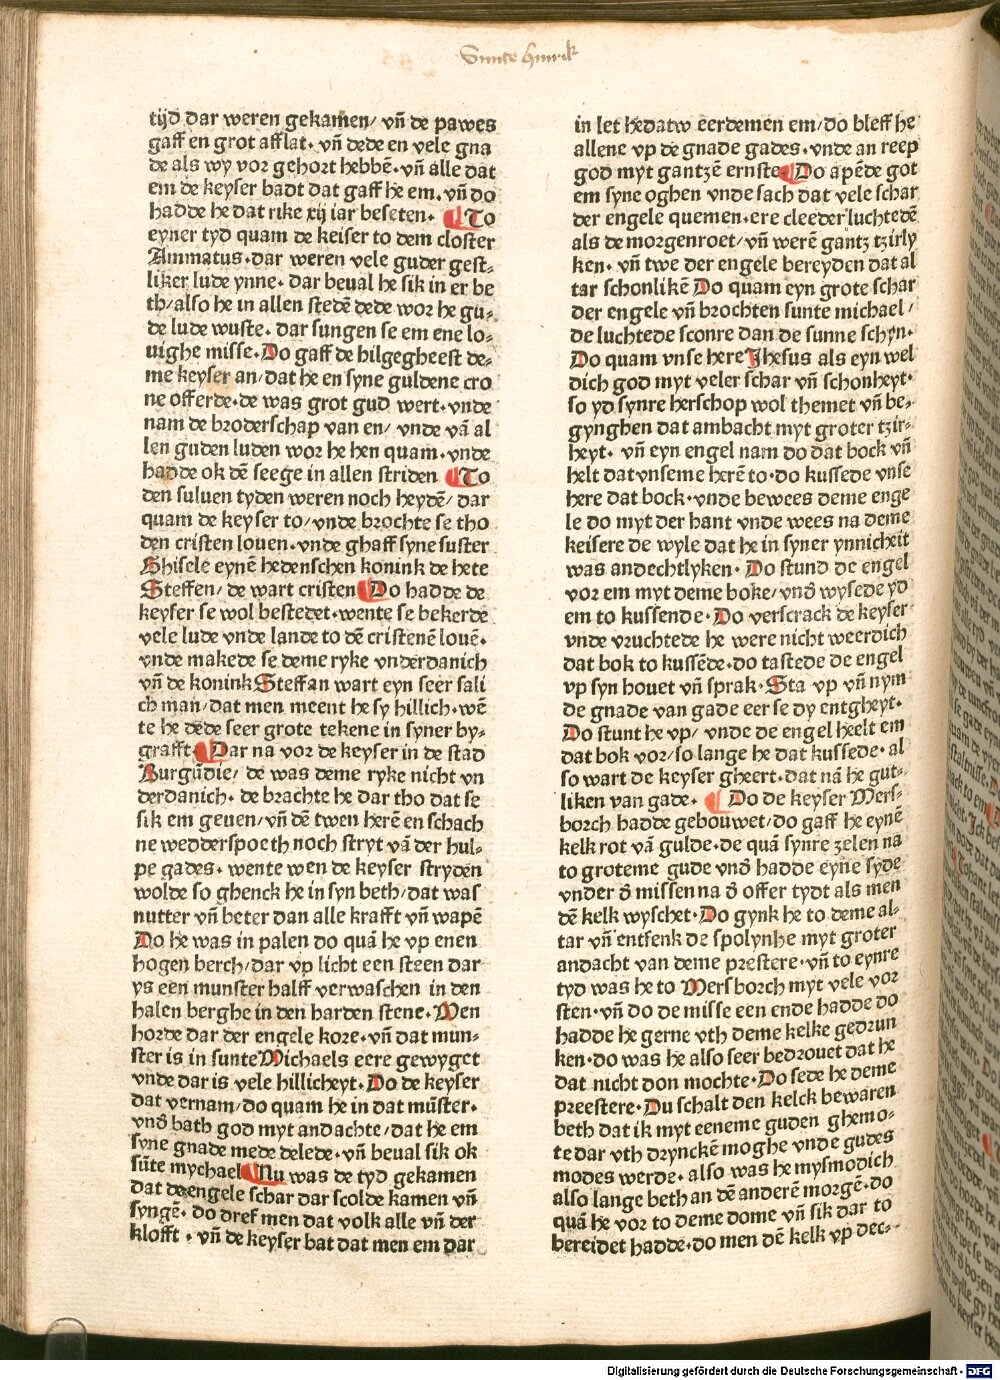 Sunte hinrik
tijd dar weren gekamen/ vn̄ de pawes
gaff en grot afflat· vn̄ dede en vele gna
de als wy vor gehort hebbē· vn̄ alle dat
em de keyser badt dat gaff he em· vn̄ do
hadde he dat rike xij iar beseten· ¶ To
eyner tyd quam de keiser to dem closter
Ammatus· dar weren vele guder gest⸗
liker lude ynne· dar beual he sik in er be
th/ also he in allen stedē dede wor he gu⸗
de lude wuste· dar sungen se em ene lo⸗
uighe misse· Do gaff de hilgegheest de⸗
me keyser an/ dat he en syne guldene cro
ne offerde· de was grot gud wert· vnde
nam de broderschap van en/ vnde vā al
len guden luden wor he hen quam· vnde
hadde ok dē seege in allen striden ¶ To
den suluen tyden weren noch heydē/ dar
quam de keyser to/ vnde brochte se tho
den cristen louen· vnde ghaff syne suster
Ghisele eynē hedenschen konink de hete
Steffen/ de wart cristen ¶ Do hadde de
keyser se wol bestedet· wente se bekerde
vele lude vnde lande to dē cristenē louē·
vnde makede se deme ryke vnderdanich
vn̄ de konink Steffan wart eyn seer sali
ch man/ dat men meent he sy hillich· wē
te he dede seer grote tekene in syner by⸗
grafft· ¶ Dar na vor de keyser in de stad
Burgūdie/ de was deme ryke nicht vn
derdanich· de brachte he dar tho dat se
sik em geuen/ vn̄ dē twen herē en schach
ne wedderspoeth noch stryt vā der hul⸗
pe gades· wente wen de keyser stryden
wolde so ghenck he in syn beth/ dat was
nutter vn̄ beter dan alle krafft vn̄ wapē
Do he was in palen do quā he vp enen
hogen berch/ dar vp licht een steen dar
ys een munster halff verwaschen in den
halen berghe in den harden stene· Men
horde dar der engele kore· vn̄ dat mun⸗
ster is in sunte Michaels eere gewyget
vnde dar is vele hillicheyt· Do de keyser
dat vernam/ do quam he in dat mūster·
vnd̄ bath god myt andachte/ dat he em
syne gnade mede delede· vn̄ beual sik ok
sūte mychael ¶ Nu was de tyd gekamen
dat de engele schar dar scolde kamen vn̄
syngē· do dref men dat volk alle vn̄ der
klofft· vn̄ de keyser bat dat men em dar
in let he datw eerdemen em/ do bleff he
allene vp de gnade gades· vnde an reep
god myt gantzē ernste· ¶ Do apēde got
em syne oghen vnde sach dat vele schar
der engele quemen· ere cleeder luchtedē
als de morgenroet/ vn̄ werē gantz tzirly
ken· vn̄ twe der engele bereyden dat al
tar schonlikē Do quam eyn grote schar
der engele vn̄ brochten sunte michael/
de luchtede sconre dan de sunne schyn·
Do quam vnse here Jhesus als eyn wel
dich god myt veler schar vn̄ schonheyt·
so yd synre herschop wol themet vn̄ be⸗
gynghen dat ambacht myt groter tzir⸗
heyt· vn̄ eyn engel nam do dat bock vn̄
helt dat vnseme herē to· do kussede vnse
here dat bock· vnde bewees deme enge
le do myt der hant vnde wees na deme
keisere de wyle dat he in syner ynnicheit
was andechtlyken· Do stund de engel
vor em myt deme boke/ vnd̄ wysede yd
em to kussende· Do verscrack de keyser
vnde vruchtede he were nicht weerdich
dat bok to kussēde· do tastede de engel
vp syn houet vn̄ sprak· Sta vp vn̄ nym
de gnade van gade eer se dy entgheyt·
Do stunt he vp/ vnde de engel heelt em
dat bok vor/ so lange he dat kussede· al
so wart de keyser gheert· dat nā he gut⸗
liken van gade· ¶ Do de keyser Mers⸗
borch hadde gebouwet/ do gaff he eynē
kelk rot vā gulde· de quā synre zelen na
to groteme gude vnd̄ hadde eyne syde
vnder d̄ missen na d̄ offer tydt als men
dē kelk wyschet· Do gynk he to deme al⸗
tar vn̄ entfenk de spolynhe myt groter
andacht van deme prestere· vn̄ to eynre
tyd was he to Mersborch myt vele vor
sten· vn̄ do de misse een ende hadde do
hadde he gerne vth deme kelke gedrun
ken· do was he also seer bedrouet dat he
dat nicht don mochte· Do sede he deme
preestere· Du schalt den kelck bewaren
beth dat ik myt eeneme guden ghemo⸗
te dar vth drynckē moghe vnde gudes
modes werde· also was he mysmodich
also lange beth an dē anderē morgē· do
quā he vor to deme dome vn̄ sik dar to
bereidet hadde· do men dē kelk vp dec⸗
Digitalisierung gefördert durch die Deutsche Forschungsgemeinschaft - DFG